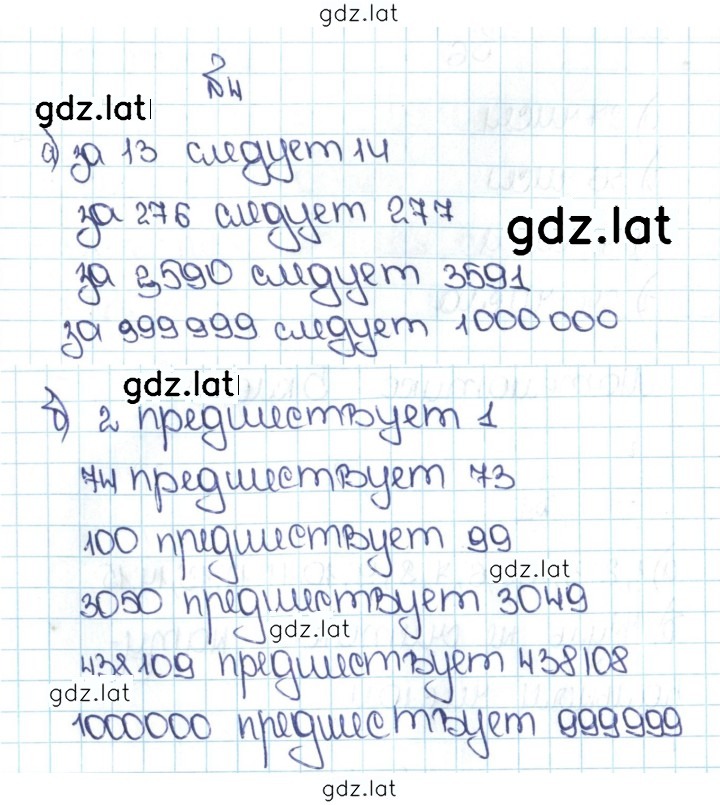 gdz.lat
№4
gdz.lat
а) за 13 следует 14
за 276 следует 277
gdz.lat
за 3590 следует 3591
за 999999 следует 1000000
gdz.lat
б) 2 предшествует 1
74 предшествует 73
100 предшествует 99
gdz.lat
3050 предшествует 3049
gdz.lat
438109 предшествует 438108
gdz.lat
1000000 предшествует 999999
gdz.lat